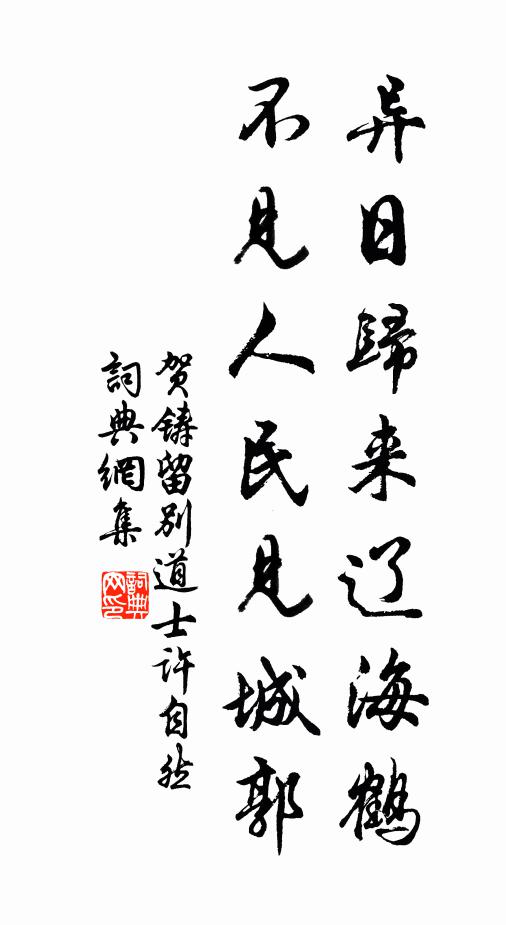 异日歸来辽海鶴
不見人民見城郭
贺鑄留别道士许自然
詞典網集
詞典
网印